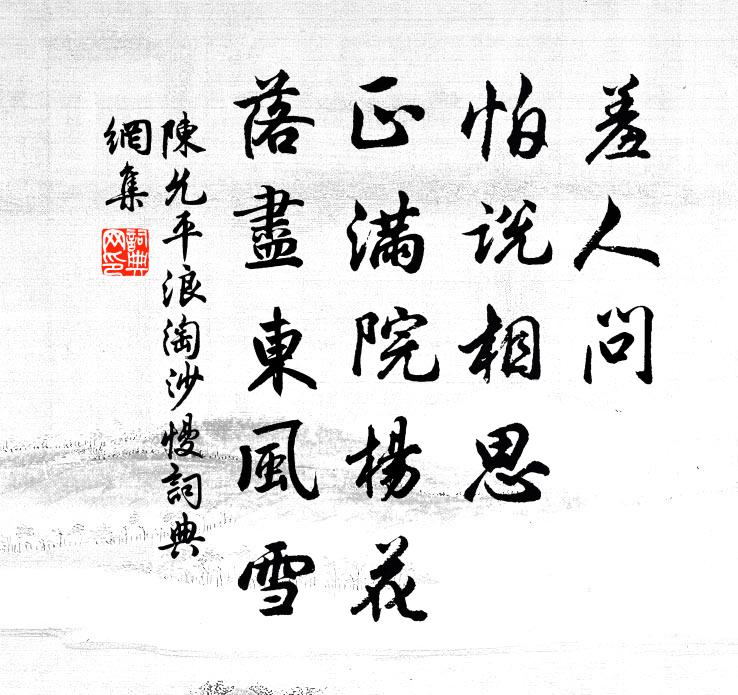 羞人問
怕說相思
正滿院楊花
落盡東風雪
陳允平浪淘沙慢詞典
網集
詞典
网印